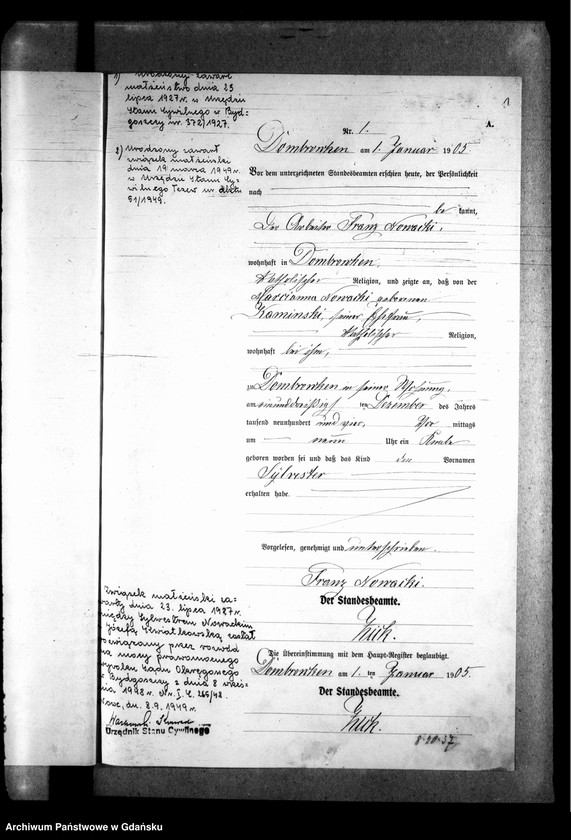 1) Urodzony zawarł
małżeństwo dnia 23
lipca 1927 r. w Urzędzie
Stanu Cywilnego w Byd-
goszczy nr. 372/1927.
2) Urodzony zawarł
związek małżeński
dnia 19 marca 1949 r.
w Urzędzie Stanu Cy-
wilnego Tczew nr. aktu
51/1949.
A.
Nr. 1.
Dombrowken am 1. Januar 1905
Vor dem unterzeichneten Standesbeamten erschien heute, der Persönlichkeit
nach
be kannt,
Der Arbeiter Franz Nowacki,
wohnhaft in Dombrowken,
Katholischer Religion, und zeigte an, daß von der
Marcianna Nowacki geborenen
Kaminski, seiner Ehefrau,
Katholischer Religion,
wohnhaft bei ihm,
zu Dombrowken in seiner Wohnung,
am einunddreißigsten Dezember des Jahres
tausend neunhundert und vier, Vor mittags
um neun Uhr ein Knabe
geboren worden sei und daß das Kind den Vornamen
Sylvester
erhalten habe.
Vorgelesen, genehmigt und unterschrieben.
Franz Nowacki.
Der Standesbeamte.
Die Übereinstimmung mit dem Haupt-Register beglaubigt.
Dombrowken am 1. ten Januar 1905.
Der Standesbeamte.
Związek małżeński za-
warty dnia 23. lipca 1927 r.
między Sylwestrem Nowackim
Józefą Kwiatkowską został
rozwiązany przez rozwód
na mocy prawomocnego
wyroku Sądu Okręgowego
w Bydgoszczy z dnia 8 wrześ-
nia 1948 r. Nr. I. C. 266/48.
dn. 8.9.1949 r.
Urzędnik Stanu Cywilnego
Archiwum Państwowe w Gdańsku